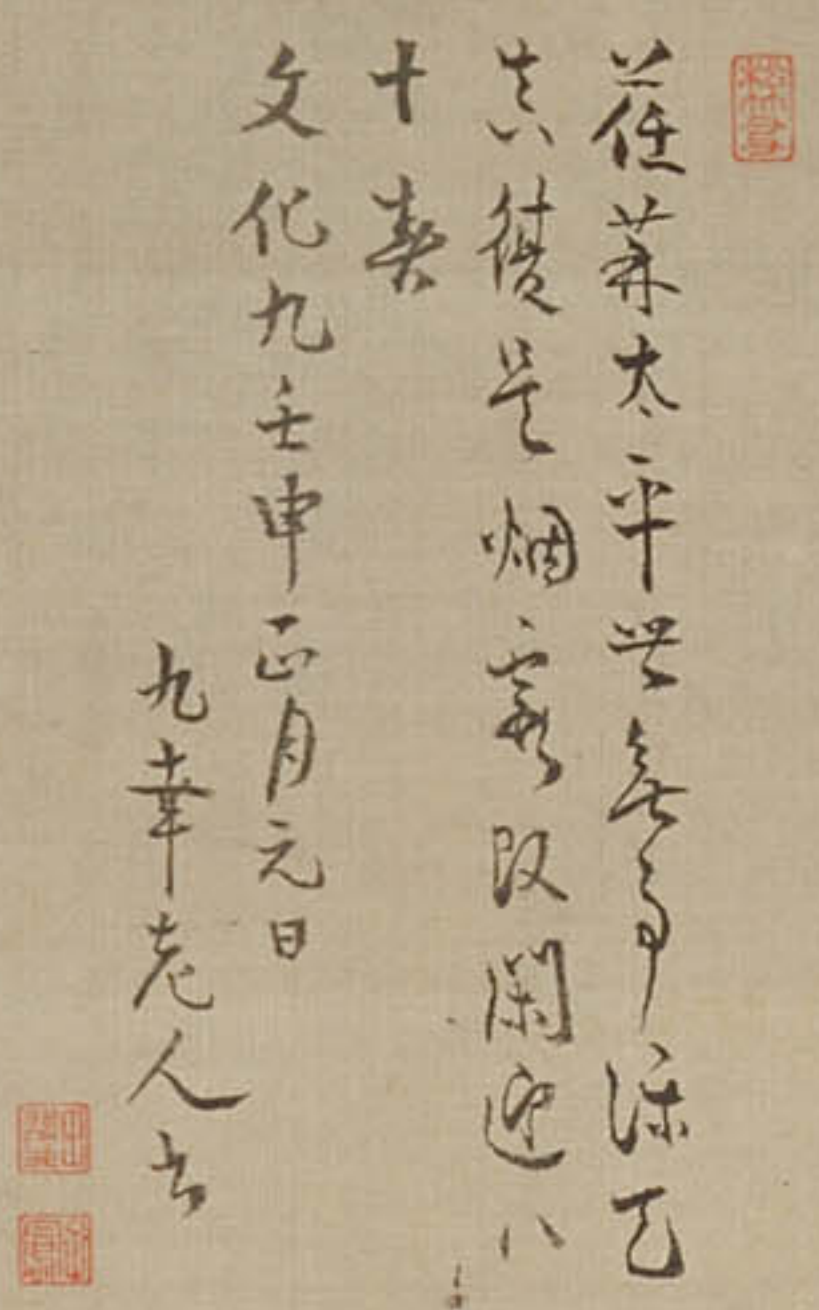 荏苒太平世無事保天
真復是烟霞改閑迎八
十春
文化九壬申正月元日
九幸老人書